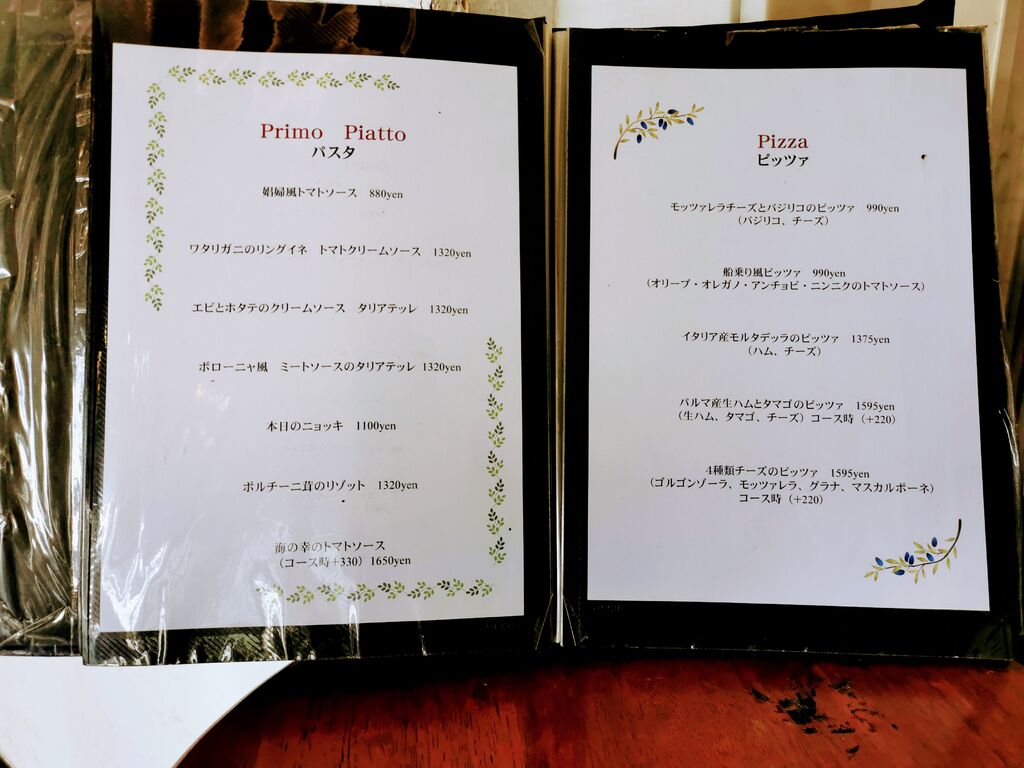 Primo Piatto
パスタ
娼婦風トマトソース 880yen
ワタリガニのリングイネ トマトクリームソース 1320yen
エビとホタテのクリームソース タリアテッレ 1320yen
ボローニャ風 ミートソースのタリアテッレ 1320yen
本日のニョッキ 1100yen
ポルチーニ茸のリゾット 1320yen
海の幸のトマトソース
(コース時+330) 1650yen
Pizza
ピッツァ
モッツァレラチーズとバジリコのピッツァ 990yen
(バジリコ、チーズ)
船乗り風ピッツァ 990yen
(オリーブ・オレガノ・アンチョビ・ニンニクのトマトソース)
イタリア産モルタデッラのピッツァ 1375yen
(ハム、チーズ)
パルマ産生ハムとタマゴのピッツァ 1595yen
(生ハム、タマゴ、チーズ) コース時 (+220)
4種類チーズのピッツァ 1595yen
(ゴルゴンゾーラ、モッツァレラ、グラナ、マスカルポーネ)
コース時 (+220)